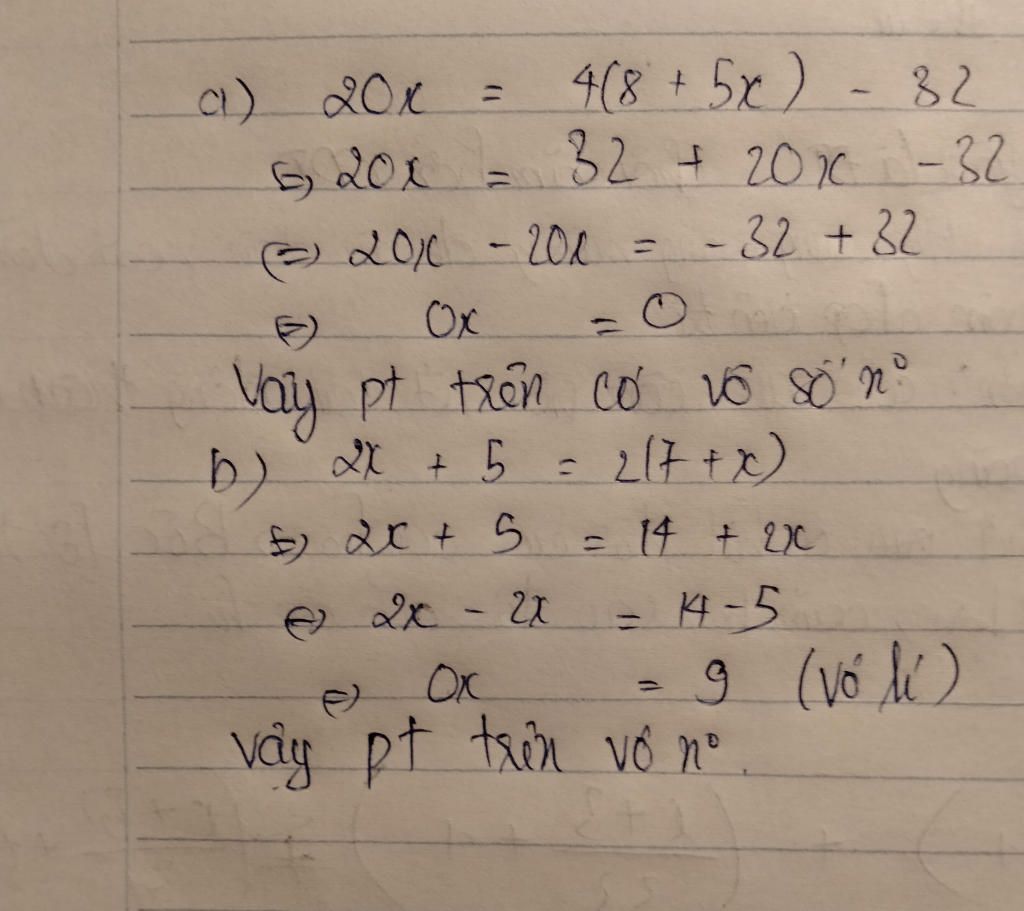 a) 20x = 4(8 + 5x) - 32
⇔ 20x = 32 + 20x - 32
⇔ 20x - 20x = -32 + 32
⇔ 0x = 0
Vậy pt trên có vô số n°
b) 2x + 5 = 2(7 + x)
⇔ 2x + 5 = 14 + 2x
⇔ 2x - 2x = 14 - 5
⇔ 0x = 9 (vô lí)
vậy pt trên vô n°.